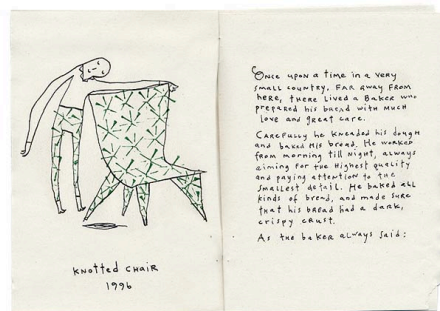 Knotted Chair
1996
Once upon a time in a very
small country, far away from
here, there lived a Baker who
prepared his bread with much
love and great care.
Carefully he kneaded his dough
and baked his bread. He worked
from morning till night, always
aiming for the highest quality
and paying attention to the
smallest detail. He baked all
kinds of bread, and made sure
that his bread had a dark,
crispy crust.
As the baker always said: